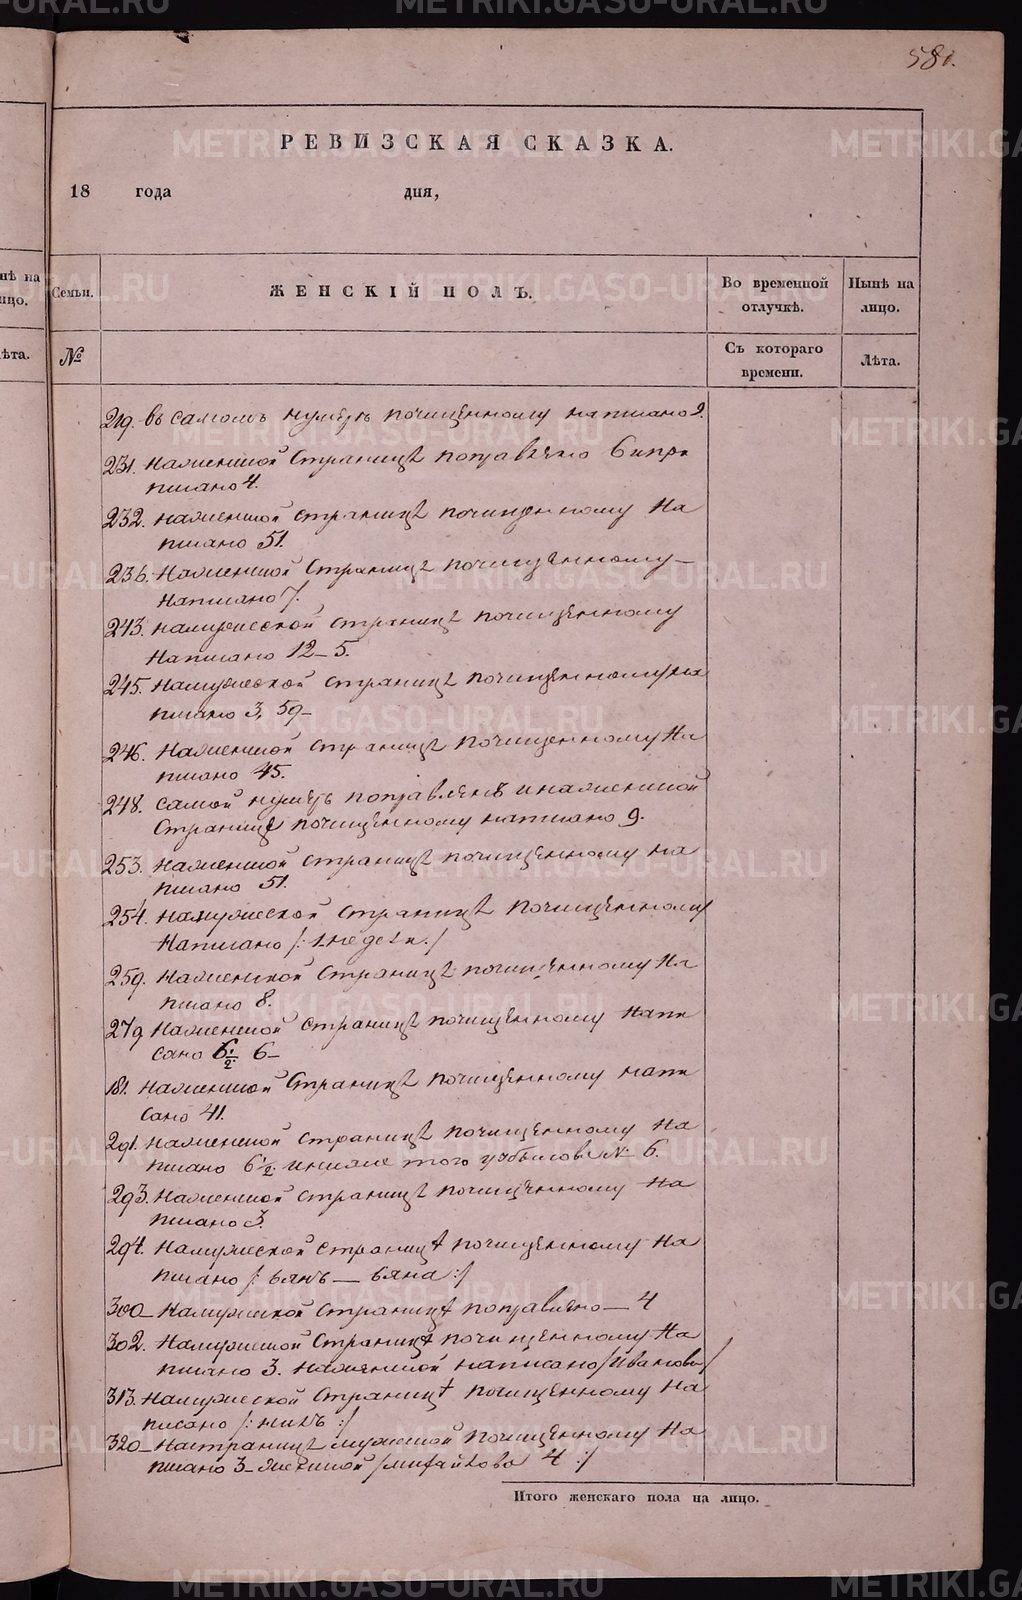 580.
РЕВИЗСКАЯ СКАЗКА.
18 года дня,
нѣ на
ицо.
ѣта.
Семьи.
ЖЕНСКІЙ ПОЛЪ.
Во временной
отлучкѣ.
Нынѣ на
лицо.
№
Съ котораго
времени.
Лѣта.
219. въ самомъ нумерѣ почищенному написано 9.
231. Наженской страницѣ поправлено 6 ипри
писано 4.
232. наженской страницѣ почищенному на
писано 51.
236. Наженской страницѣ почищенному
написано 7.
243. намужеской страницѣ почищенному
написано 12 – 5.
245. Намужеской страницѣ почищенному на
писано 3, 59 –
246. Наженской страницѣ почищенному На
писано 45.
248. самой нумеръ поправленъ инаженской
страницѣ почищенному написано 9.
253. Наженской страницѣ почищенному на
писано 51.
254. Намужеской страницѣ почищенному
Написано /: 1 недели :/
259. Наженской страницѣ почищенному На
писано 8.
279 Наженской страницѣ почищенному напи
сано 6 1/2 6 –
181. Наженской страницѣ почищенному напи
сано 41.
291. Наженской страницѣ почищенному На
писано 6 1/2. иниже того № 6.
293. Наженской страницѣ почищенному На
писано 3.
294. Намужеской страницѣ почищенному На
писано /: ьянъ — ьяна :/
300 – Намужеской страницѣ поправлено — 4
302. Намужеской страницѣ почищенному На
писано 3. наженской написано /Иванова/
313. Намужеской страницѣ почищенному На
писано /: :/
320 – Настраницѣ мужеской почищенному На
писано 3 – женской /михайлова 4 :/
Итого женскаго пола на лицо.
METRIKI.GASO-URAL.RU